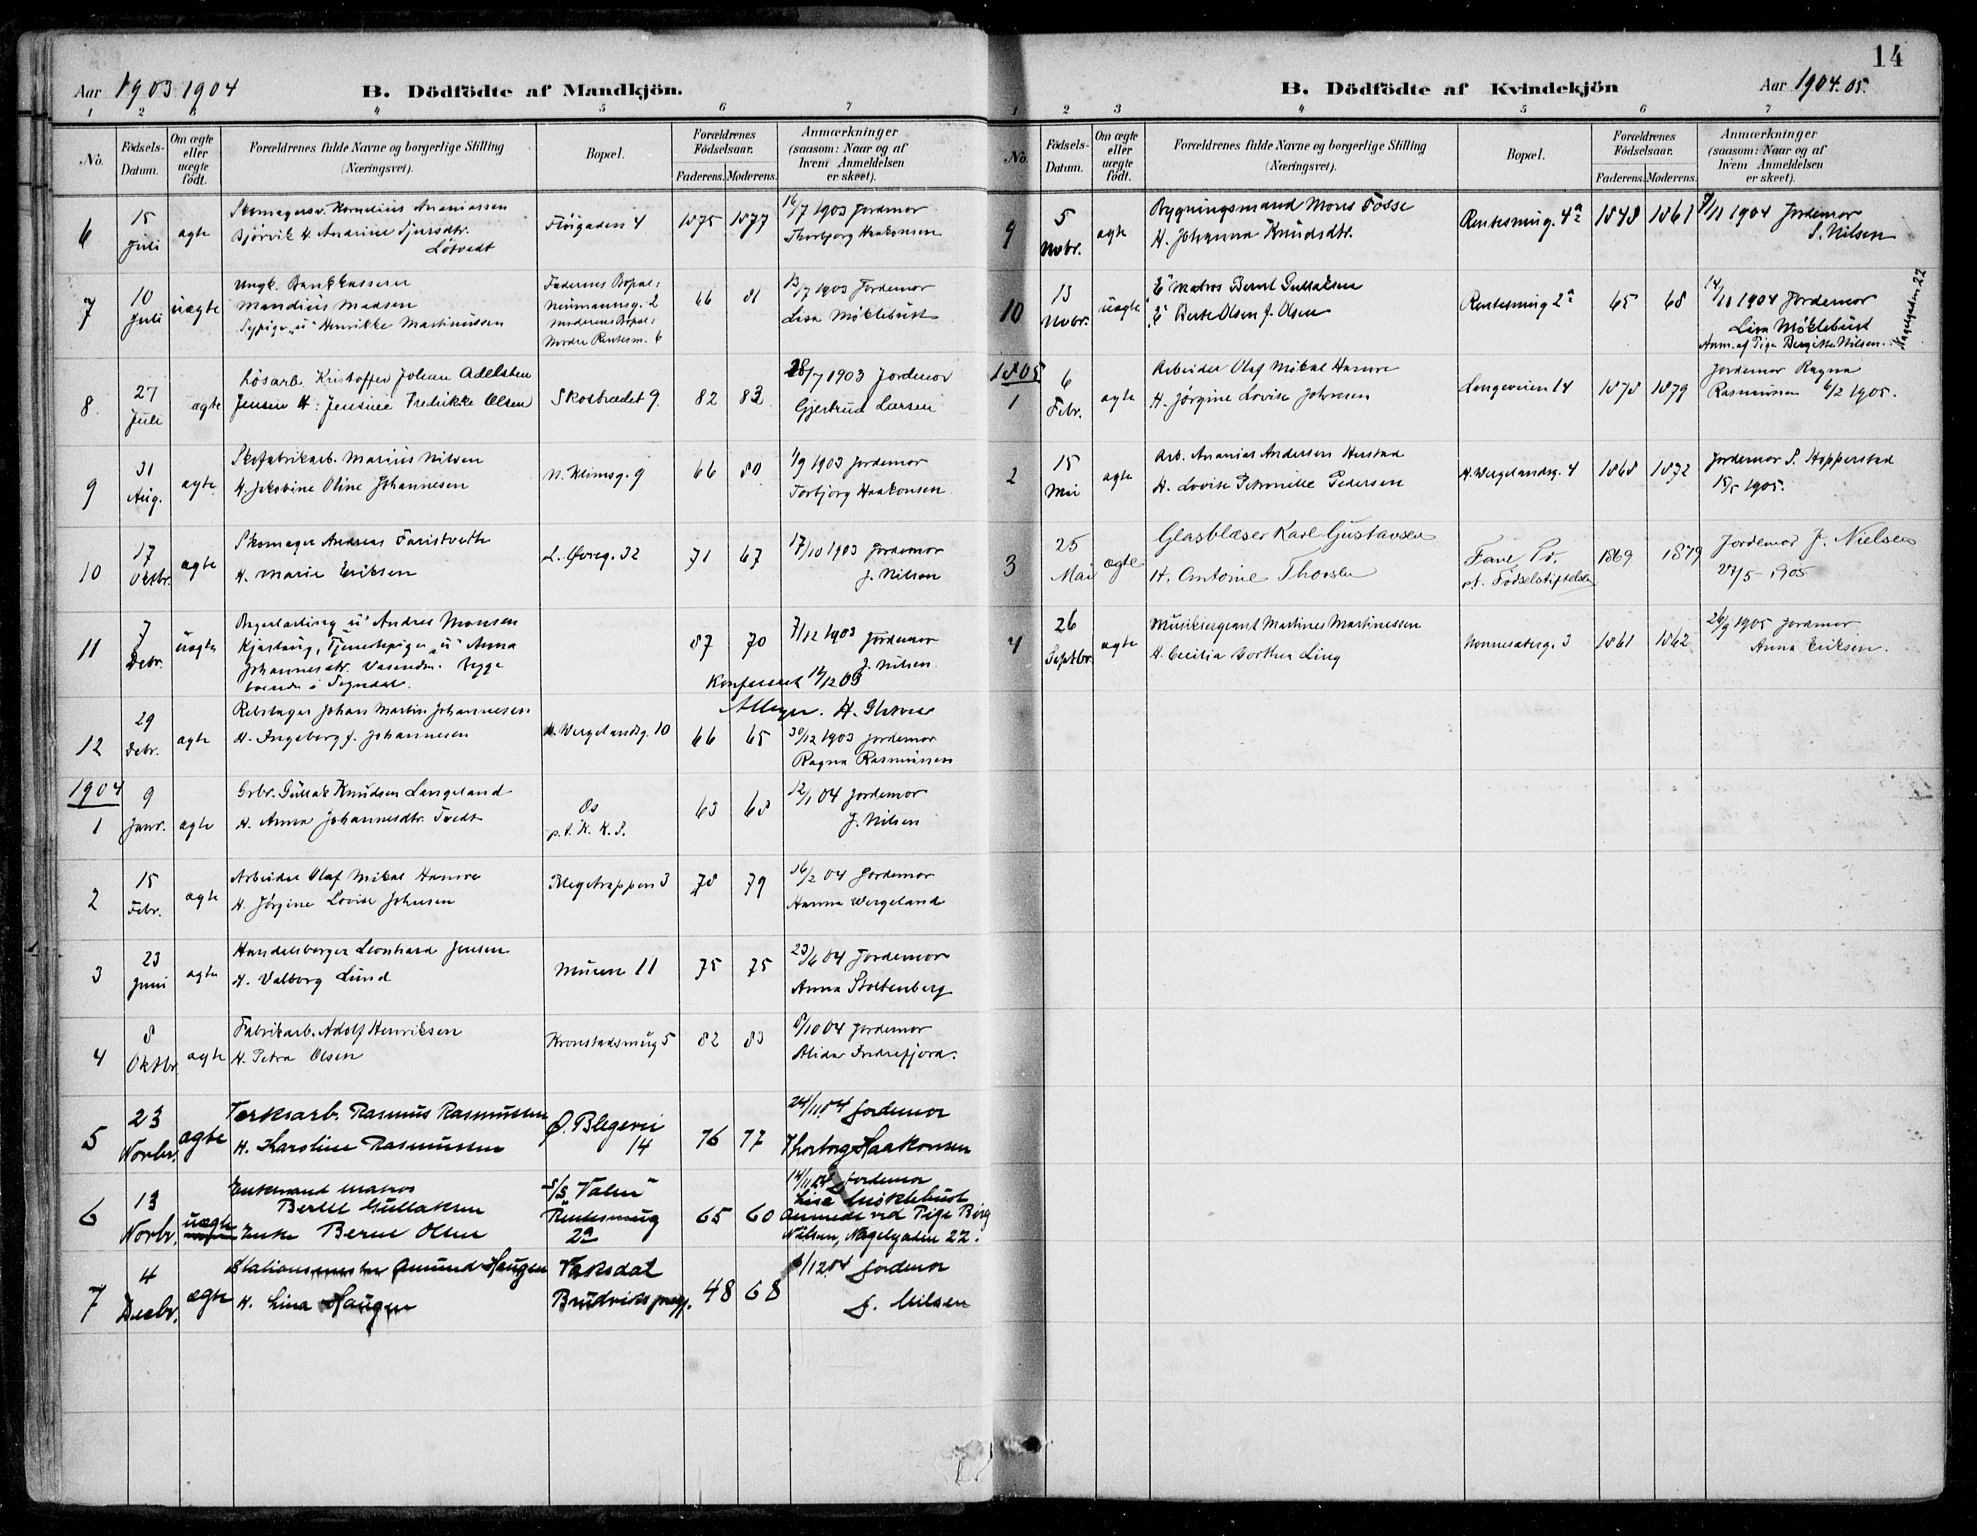 Aar 1903 1904
B. Dödfödte af Mandkjön.
1 2 3 4 5 6 7
No.
Födsels-Datum.
Om ægte eller uægte födt.
Forældrenes fulde Navne og borgerlige Stilling (Næringsvei).
Bopæl.
Forældrenes Födselsaar.
Faderens. Moderens.
Anmærkninger (saasom: Naar og af hvem Anmeldelsen er skeet).
6
15 Juli
ægte
Skomagersv. Kornelius Ananiassen
Bjørvik H. Andrine Sjursdtr.
Løtvedt
Fløigaden 4
1875 1877
16/7 1903 Jordemor
Thorbjorg Haakonsen
7
10 Juli
uægte
Ungk. Bankkasserer
Mandius Madsen
Sypige "u" Henrikke Martinussen
Faderens Bopæl:
Neumannsg. 2
Moderens Bopæl:
Nordre Rentesm. 6
66 81
13/7 1903 Jordemor
Lisa Møklebust
8
27 Juli
ægte
Løsarb. Kristoffer Johan Adelsten
Jensen H: Jensine Fredrikke Olsen
Skostrædet 9
82 83
28/7 1903 Jordemor
Gjertrud Larsen
9
31 Aug.
ægte
Skofabrikarb. Marius Nilsen
H. Jakobine Oline Johannesen
N. Klimsg. 9
66 80
1/9 1903 Jordemor
Torbjørg Haakonsen
10
17 Oktbr.
ægte
Skomager Andreas Faristveth
H. Marie Eriksen
L. Øvreg. 32
71 67
17/10 1903 Jordemor
J. Nilsen
11
7 Debr.
uægte
Bagerlærling "u" Andres Monsen
Kjørlaug, Tjenestepige "u" Anna
Johannesdtr. Vasenden. Begge
boende i
87 70
7/12 1903 Jordemor
J. Nilsen
Konfereret 14/12 03
12
29 Debr.
ægte
Rebslager Johan Martin Johannesen
H. Ingeborg f. Johannesen
H. Wergelandsg. 10
66 65
30/12 1903 Jordemor
Ragna Rasmussen
1904
1
9 Janr.
ægte
Grbr. Gullak Knudsen Langeland
H. Anna Johannesdtr. Tvedt
Os
p.t. K. K. S.
63 68
12/1 04 Jordemor
J. Nilsen
2
15 Febr.
ægte
Arbeider Olaf Mikal Hamre
H. Jørgine Lovise Johnsen
Blegetrappen 3
78 79
16/2 04 Jordemor
Hanna Wergeland
3
23 Juni
ægte
Handelsborger Leonhard Jensen
H. Valborg Lund
Muren 11
75 75
23/6 04 Jordemor
Anna Stoltenberg
4
8 Oktbr.
ægte
Fabrikarb. Adolf Henriksen
H. Petra Olsen
Kronstadsmug 5
82 83
8/10 04 Jordemor
Alida Indrefjord.
5
23 Novbr.
ægte
Verksarb. Rasmus Rasmussen
H. Karoline Rasmussen
Ø. Blegevei
14
76 77
24/11 04 Jordemor
Thorborg Haakonsen
6
13 Novbr.
uægte
Enkemand Matros
Bernt Gullaksen
Enke Berte Olsen
S/S "Valen"
Rentesmug
2a
65 60
14/11 04 Jordemor
Lisa Møklebust
Anmeldt ved Pige Berg.
Nilsen, Nagelgaden 22.
7
4 Decbr.
ægte
Stationsmester Amund Haugen
H. Lina Haugen
Vaksdal
Brudviks prgj.
48 68
/12 04 Jordemor
J. Nilsen
14
B. Dödfödte af Kvindekjön
Aar 1904. 05.
1 2 3 4 5 6 7
No.
Födsels-Datum.
Om ægte eller uægte födt.
Forældrenes fulde Navne og borgerlige Stilling (Næringsvei).
Bopæl.
Forældrenes Födselsaar.
Faderens. Moderens.
Anmærkninger (saasom: Naar og af hvem Anmeldelsen er skeet).
9
5 Novbr.
ægte
Bygningsmand Mons Fosse
H. Johanna Knudsdtr.
Rentesmug. 4a
1848 1861
/11 1904 Jordemor
S. Nilsen
10
13 Novbr.
uægte
"E" Matros Bernt Gullaksen
"E" Berte Olsen f. Olsen
Rentesmug 2a
65 68
14/11 1904 Jordemor
Lisa Møklebust
Anm. af Pige Bergitte Nilsen.
Nagelgaden 22
1805
1
6 Febr.
ægte
Arbeider Olaf Mikal Hamre
H. Jørgine Lovise Johnsen
Langeveien 14
1878 1879
Jordemor Ragna
Rasmussen 6/2 1905.
2
15 Mai
ægte
Arb. Ananias Andersen Herstad
H. Lovise Petronille Pedersen
H. Wergelandsg. 4
1868 1872
Jordemor S. Hopperstad
15/5 1905.
3
25 Mai
ægte
Glasblæser Karl Gustavsen
H. Antonie Thorsen
Fane
pt. Fødselstiftelsen
1869 1879
Jordemor J. Nielsen
27/5 - 1905
4
26 Septbr.
ægte
Musiksergeant Martines Martinessen
H. Cecilia Dorthea Ling
Nonneseterg. 3
1861 1862
26/9 1905 Jordemor
Anna Eriksen.